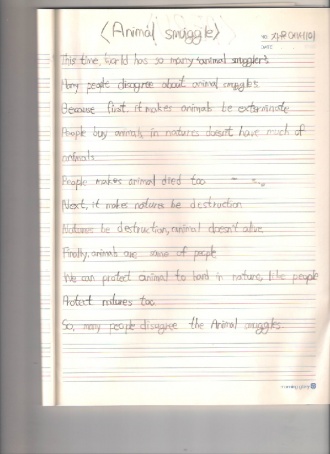 <Animal smuggle>
NO.
DATE
This time, world has so many animal smugglers
Many people disagree about animal smuggles
Because first, it makes animals be exterminate
People buy animals in natures doesn't have much of
animals
People makes animal died too
Next, it makes natures be destruction
Natures be destruction, animal doesn't alive
Finally, animals are same of people
We can protect animal to land in nature, like people
Protect natures too.
So, many people disagree the Animal smuggles.